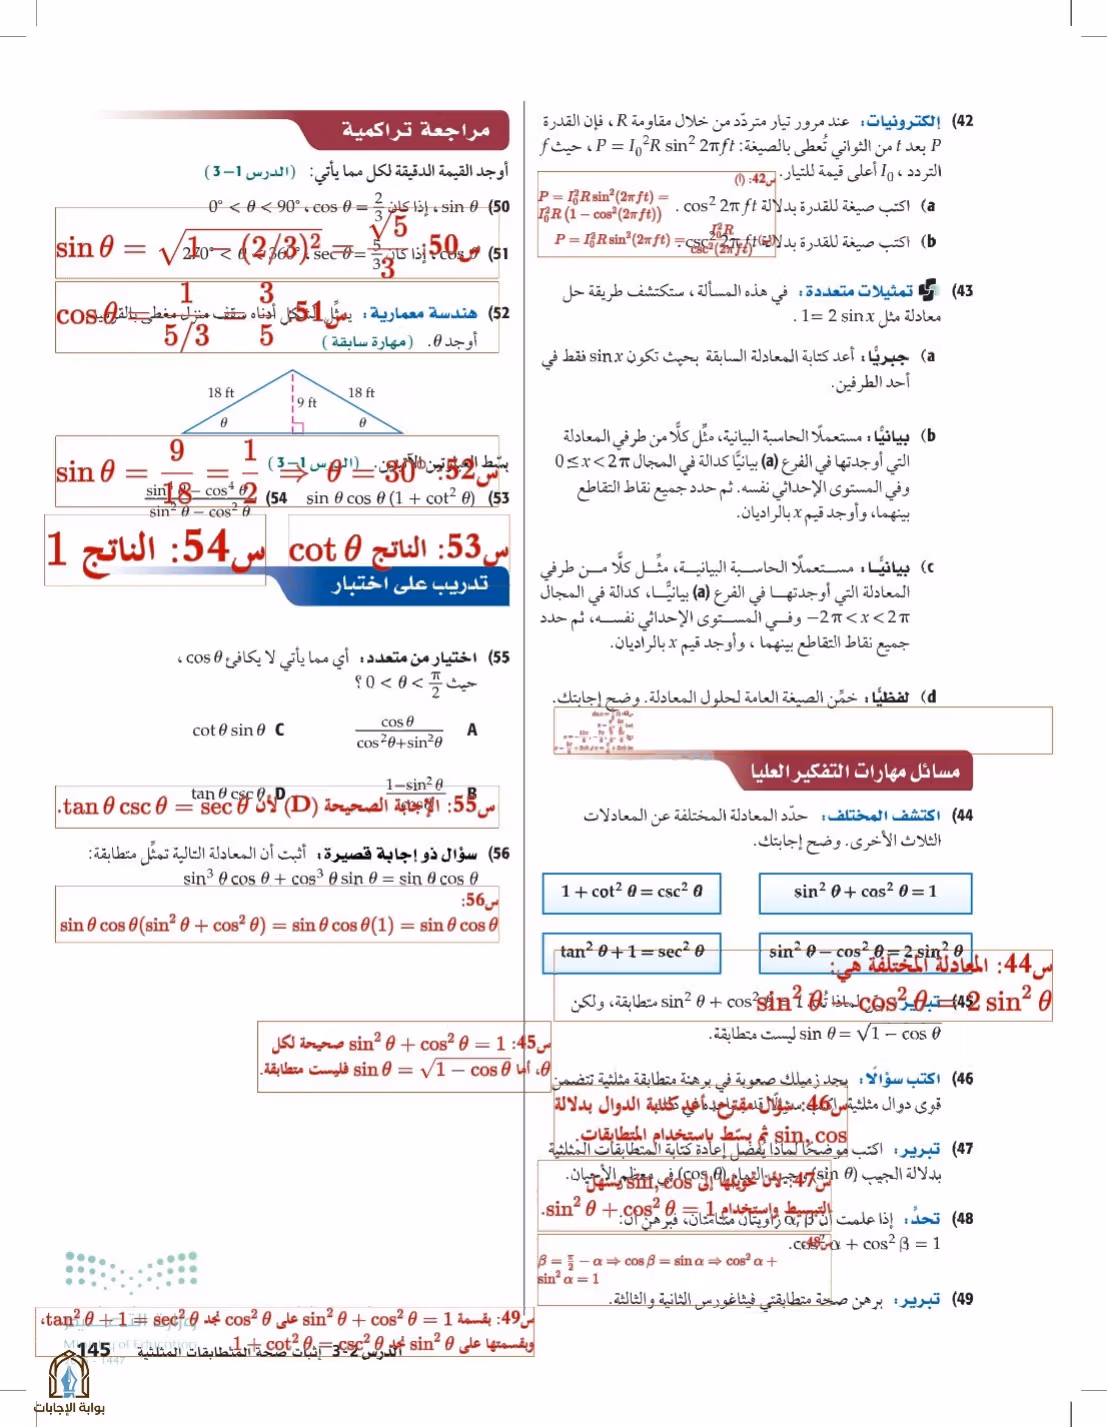 42) إلكترونيات: عند مرور تيار متردّد من خلال مقاومة R ، فإن القدرة
P بعد t من الثواني تُعطى بالصيغة: P = I₀²R sin² 2πft ، حيث f
التردد ، I₀ أعلى قيمة للتيار.
س42: (أ)
P = I₀²R sin²(2πft) =
I₀²R (1 − cos²(2πft))
a) اكتب صيغة للقدرة بدلالة cos² 2πft .
P = I₀²R sin²(2πft) = I₀²R / csc²(2πft)
b) اكتب صيغة للقدرة بدلالة csc² 2πft .
43) تمثيلات متعددة: في هذه المسألة، ستكتشف طريقة حل
معادلة مثل 1= 2 sin x .
a) جبريًّا: أعد كتابة المعادلة السابقة بحيث تكون sin x فقط في
أحد الطرفين.
b) بيانيًّا: مستعملًا الحاسبة البيانية، مثّل كلًّا من طرفي المعادلة
التي أوجدتها في الفرع (a) بيانيًّا كدالة في المجال 0 ≤ x < 2π
وفي المستوى الإحداثي نفسه. ثم حدد جميع نقاط التقاطع
بينهما، وأوجد قيم x بالراديان.
c) بيانيًّا: مستعملًا الحاسبة البيانية، مثّل كلًّا من طرفي
المعادلة التي أوجدتها في الفرع (a) بيانيًّا، كدالة في المجال
−2π < x < 2π وفي المستوى الإحداثي نفسه، ثم حدد
جميع نقاط التقاطع بينهما ، وأوجد قيم x بالراديان.
d) لفظيًّا: خمّن الصيغة العامة لحلول المعادلة. وضح إجابتك.
مسائل مهارات التفكير العليا
44) اكتشف المختلف: حدّد المعادلة المختلفة عن المعادلات
الثلاث الأخرى. وضح إجابتك.
sin² θ + cos² θ = 1
1 + cot² θ = csc² θ
sin² θ − cos² θ = 2 sin² θ
tan² θ + 1 = sec² θ
س44: المعادلة المختلفة هي:
sin² θ − cos² θ = 2 sin² θ
45) تبرير: لماذا sin² θ + cos² θ = 1 متطابقة، ولكن
sin θ = √(1 − cos θ) ليست متطابقة.
س45: sin² θ + cos² θ = 1 صحيحة لكل
θ، أما sin θ = √(1 − cos θ) فليست متطابقة.
46) اكتب سؤالًا: يجد زميلك صعوبة في برهنة متطابقة مثلثية تتضمن
قوى دوال مثلثية.
س46: سؤال مقترح: أعد كتابة الدوال بدلالة
sin, cos ثم بسّط باستخدام المتطابقات.
47) تبرير: اكتب موضحًا لماذا يُفضل إعادة كتابة المتطابقات المثلثية
بدلالة الجيب (sin θ) وجيب التمام (cos θ) في معظم الأحيان.
س47: لأن تحويلها إلى sin, cos يسهل
التبسيط واستخدام sin² θ + cos² θ = 1.
48) تحدٍّ: إذا علمت أن α, β زاويتان متتامتان، فبرهن أن:
cos² α + cos² β = 1.
س48:
β = π/2 − α ⇒ cos β = sin α ⇒ cos² α +
sin² α = 1
49) تبرير: برهن صحة متطابقتي فيثاغورس الثانية والثالثة.
س49: بقسمة sin² θ + cos² θ = 1 على cos² θ نجد tan² θ + 1 = sec² θ،
وبقسمتها على sin² θ نجد 1 + cot² θ = csc² θ
مراجعة تراكمية
أوجد القيمة الدقيقة لكل مما يأتي: (الدرس 1-3)
50) sin θ ، إذا كان cos θ = 2/3 ، 0° < θ < 90°
س50: sin θ = √(1 − (2/3)²) = √5/3
51) cos θ ، إذا كان sec θ = 5/3 ، 270° < θ < 360°
س51: cos θ = 1/(5/3) = 3/5
52) هندسة معمارية: يمثّل الشكل أدناه سقف منزل مغطى بالقرميد
أوجد θ. (مهارة سابقة)
18 ft
18 ft
9 ft
θ
θ
س52: sin θ = 9/18 = 1/2 ⇒ θ = 30°
بسّط العبارتين الآتيتين. (الدرس 1-3)
53) sin θ cos θ (1 + cot² θ)
54) (sin⁴ θ − cos⁴ θ)/(sin² θ − cos² θ)
س53: الناتج cot θ
س54: الناتج 1
تدريب على اختبار
55) اختيار من متعدد: أي مما يأتي لا يكافئ cos θ ،
حيث 0 < θ < π/2 ؟
A cos θ/(cos²θ+sin²θ)
C cot θ sin θ
B 1−sin² θ
D tan θ csc θ
س55: الإجابة الصحيحة (D) لأن tan θ csc θ = sec θ.
56) سؤال ذو إجابة قصيرة: أثبت أن المعادلة التالية تمثّل متطابقة:
sin³ θ cos θ + cos³ θ sin θ = sin θ cos θ
س56:
sin θ cos θ(sin² θ + cos² θ) = sin θ cos θ(1) = sin θ cos θ
وزارة التعليم
Ministry of Education
1447
الدرس 2-3 إثبات صحة المتطابقات المثلثية 145
بوابة الإجابات